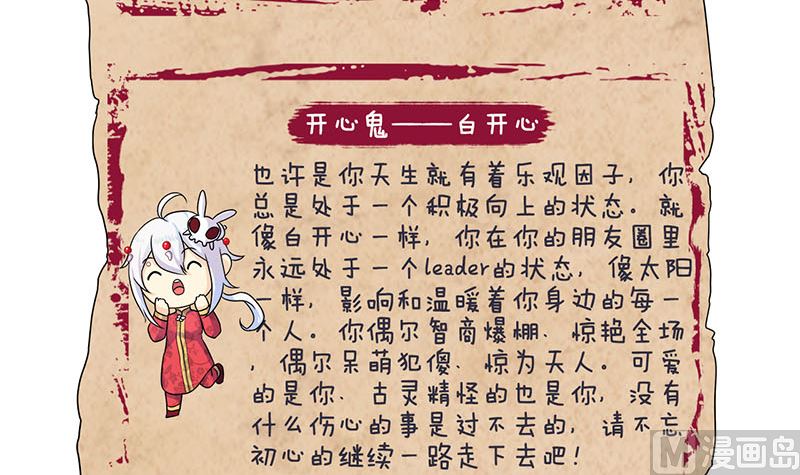 开心鬼——白开心
也许是你天生就有着乐观因子，你
总是处于一个积极向上的状态。就
像白开心一样，你在你的朋友圈里
永远处于一个leader的状态，像太阳
一样，影响和温暖着你身边的每一
个人。你偶尔智商爆棚、惊艳全场
，偶尔呆萌犯傻、惊为天人。可爱
的是你、古灵精怪的也是你，没有
什么伤心的事是过不去的，请不忘
初心的继续一路走下去吧！
漫画岛